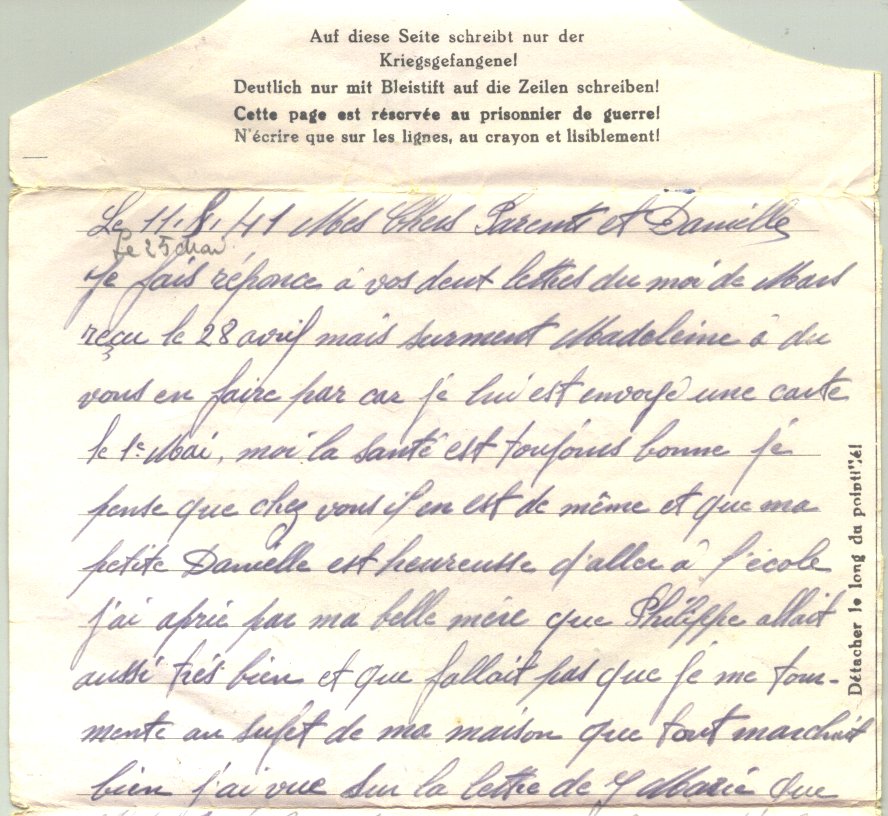 Auf diese Seite schreibt nur der
Kriegsgefangene!
Deutlich nur mit Bleistift auf die Zeilen schreiben!
Cette page est réservée au prisonnier de guerre!
N'écrire que sur les lignes, au crayon et lisiblement!
Le 11. 41 Mes Chers Parents et Danielle
Le 25 mai
Je fais réponce à vos deux lettres du moi de Mars
reçu le 28 avril mais surment Madeleine à du
vous en faire par car je lui est envoyé une carte
le 1e Mai, moi la santé est toujours bonne je
pense que chez vous il en est de même et que ma
petite Danielle est heureusse d'aller à l'école
j'ai aprie par ma belle mère que Philippe allait
aussi très bien et que fallait pas que je me tour-
mente au sujet de ma maison que tout marchait
bien j'ai vue sur la lettre de Marie que
Détacher le long du pointillé!